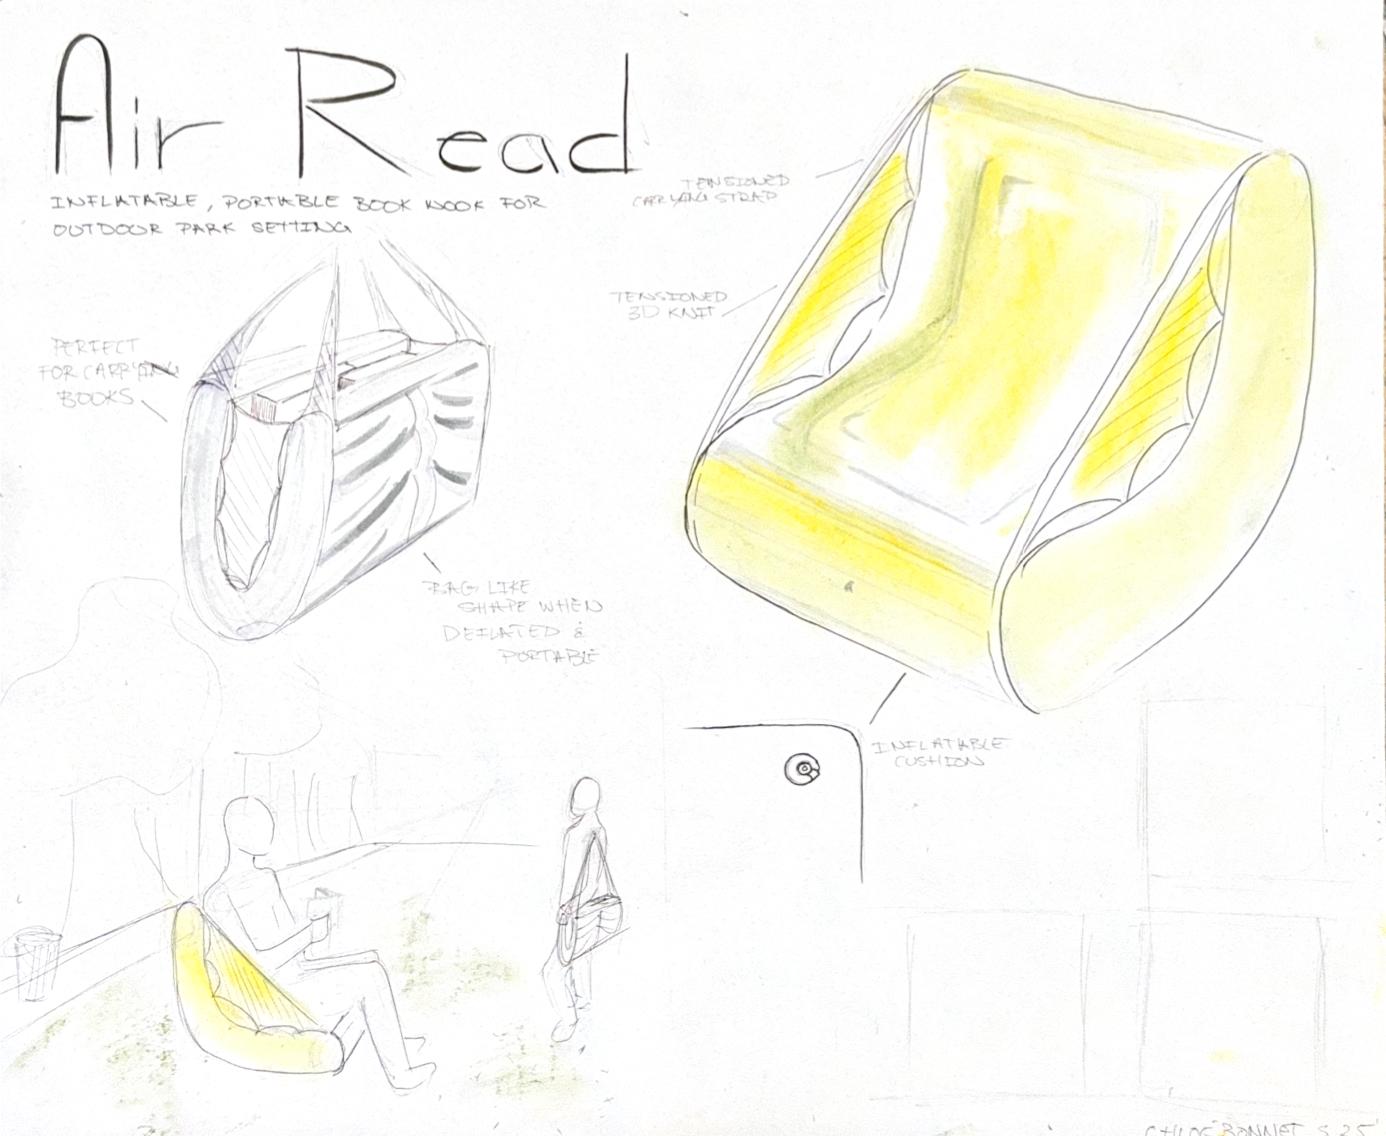 Air Read
INFLATABLE, PORTABLE BOOK NOOK FOR
OUTDOOR PARK SETTING
TENSIONED
CARRYING STRAP
TENSIONED
3D KNIT
PERFECT
FOR CARRYING
BOOKS
BAG LIKE
SHAPE WHEN
DEFLATED &
PORTABLE
INFLATABLE
CUSHION
CHLOÉ BONNET S 25